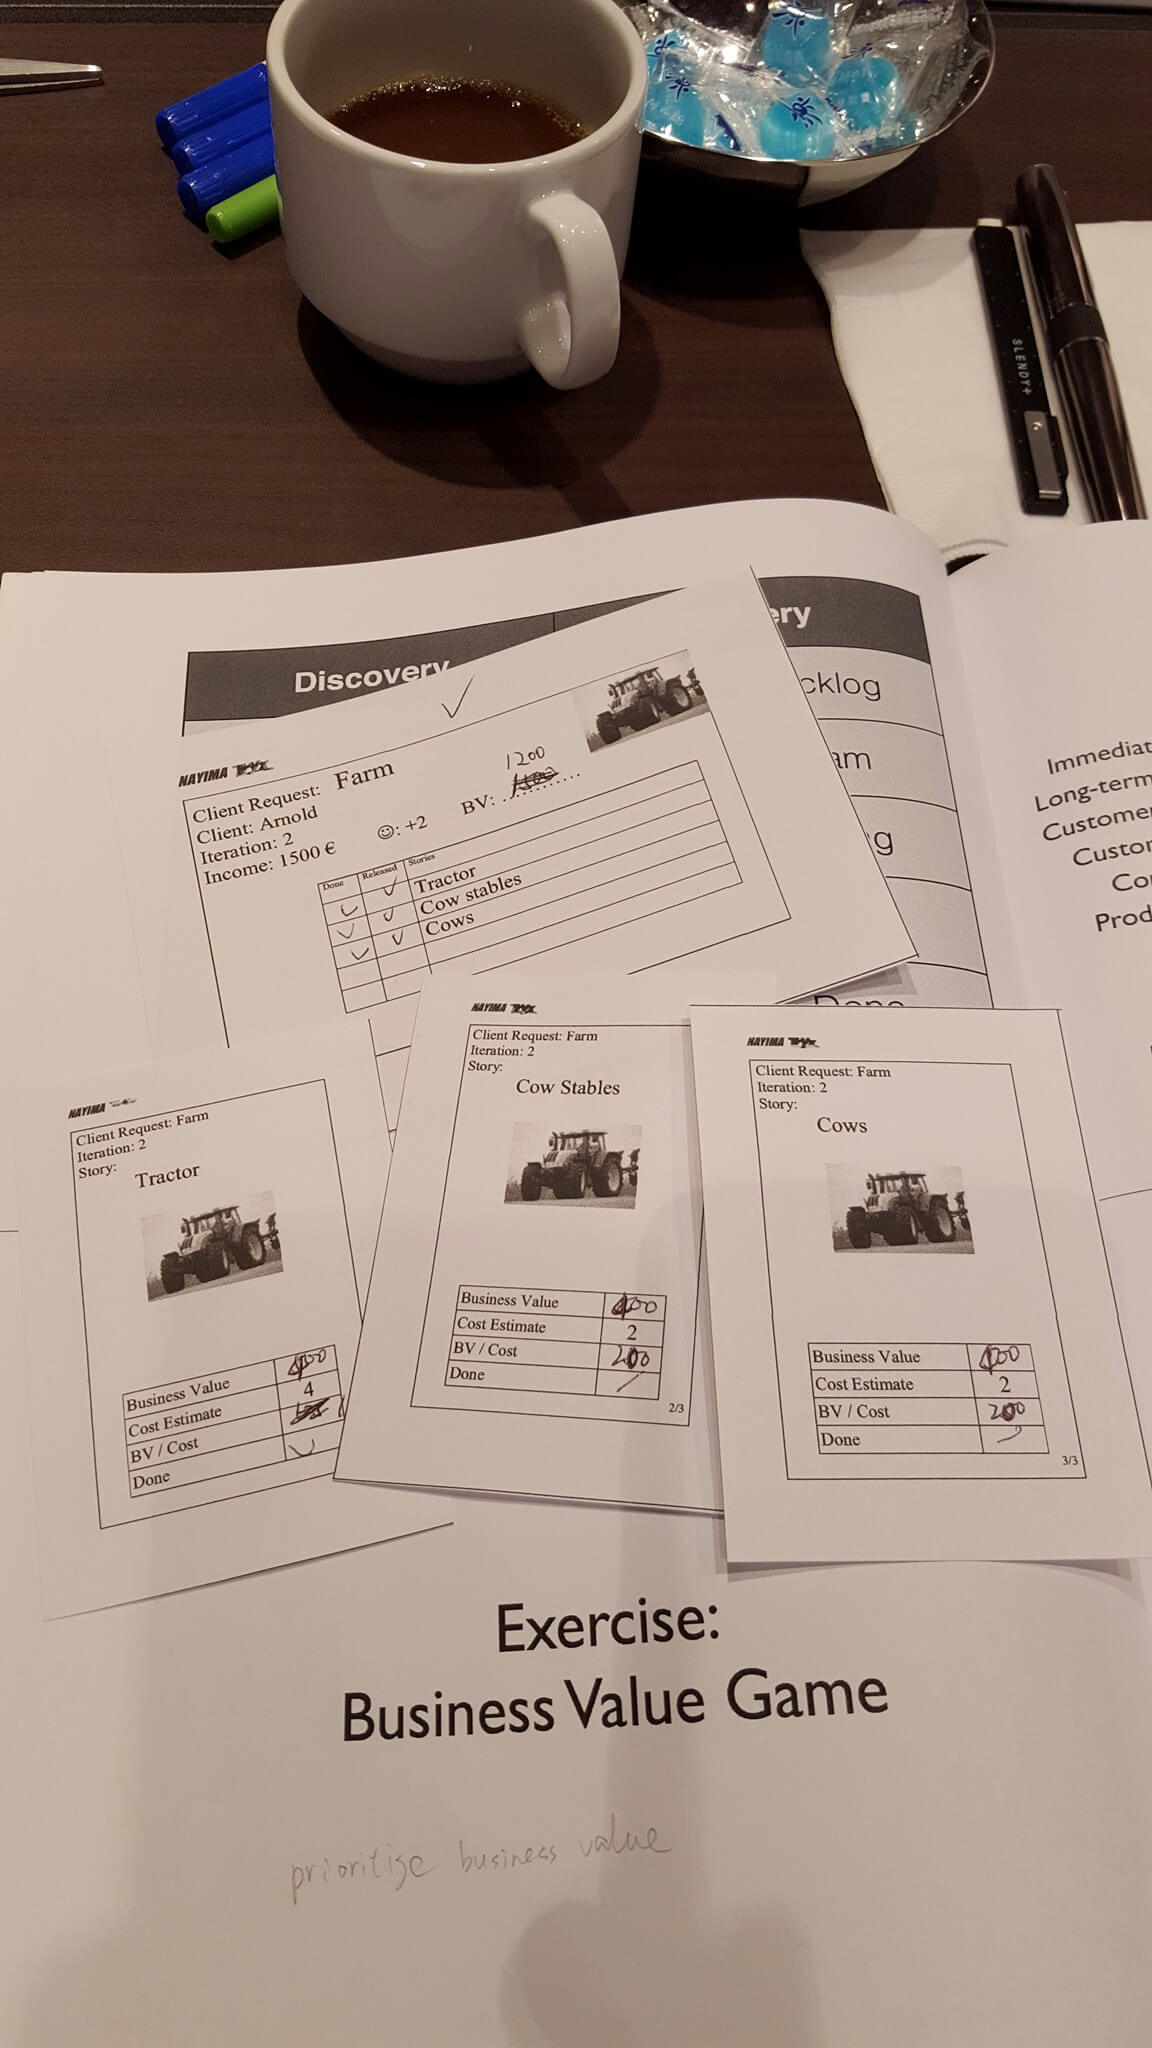 SLENDY+
Discovery
ery
cklog
am
g
Done
Immediat
Long-term
Custome
Custor
Co
Prod
NAYIMA
Client Request: Farm
Client: Arnold
Iteration: 2
Income: 1500 €
☺: +2
BV: ..............
1200
Done Released Stories
Tractor
Cow stables
Cows
NAYIMA
Client Request: Farm
Iteration: 2
Story:
Tractor
Business Value 400
Cost Estimate 4
BV / Cost
Done
NAYIMA
Client Request: Farm
Iteration: 2
Story:
Cow Stables
Business Value 400
Cost Estimate 2
BV / Cost 200
Done
2/3
NAYIMA
Client Request: Farm
Iteration: 2
Story:
Cows
Business Value 400
Cost Estimate 2
BV / Cost 200
Done
3/3
Exercise:
Business Value Game
prioritize business value